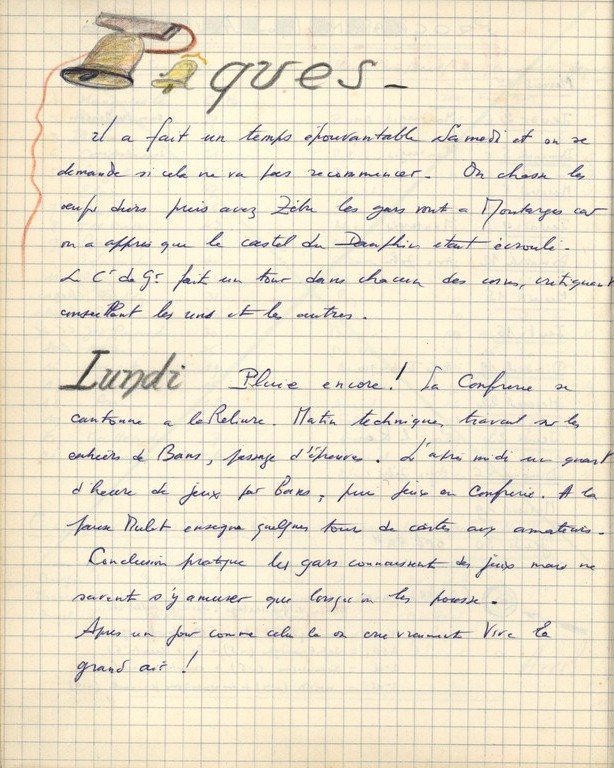 Pâques -
il a fait un temps épouvantable Samedi et on se
demande si cela ne va pas recommencer. On chasse les
oeufs durs puis avec Zébu les gars vont a Montargis car
on a appris que le castel du Dauphin etait écroulé.
Le Ct de Gr fait un tour dans chacun des coins, critiquant
conseillant les uns et les autres.
Lundi Pluie encore! La Confrerie se
cantonne a la Reliure. Matin techniques, travail sur les
cahiers de Bans, passage d'épreuves. L'après midi un quart
d'heure de jeux par Bans, puis jeux en Confrerie. A la
pause Mulet enseigne quelques tours de cartes aux amateurs.
Conclusion pratique les gars connaissent des jeux mais ne
savent s'y amuser que lorsqu'on les pousse.
Apres un jour comme celui la on crie vraiment Vive le
grand air!